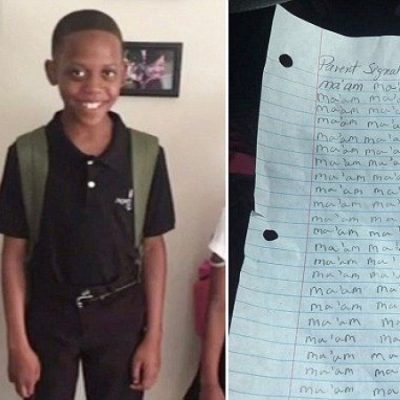 Parent Signat
ma'am ma'a
ma'am ma'a
ma'am ma'a
ma'am ma'a
ma'am ma'a
ma'am ma'a
ma'am ma'a
ma'am ma'a
ma'am ma'a
ma'am ma'a
ma'am ma'a
ma'am ma'a
ma'am ma'a
ma'am ma'a
ma'am ma'a
ma'am ma'
ma'am ma'
ma'am ma'
ma'am ma'
ma'am ma'
ma'am ma'
ma'am ma'